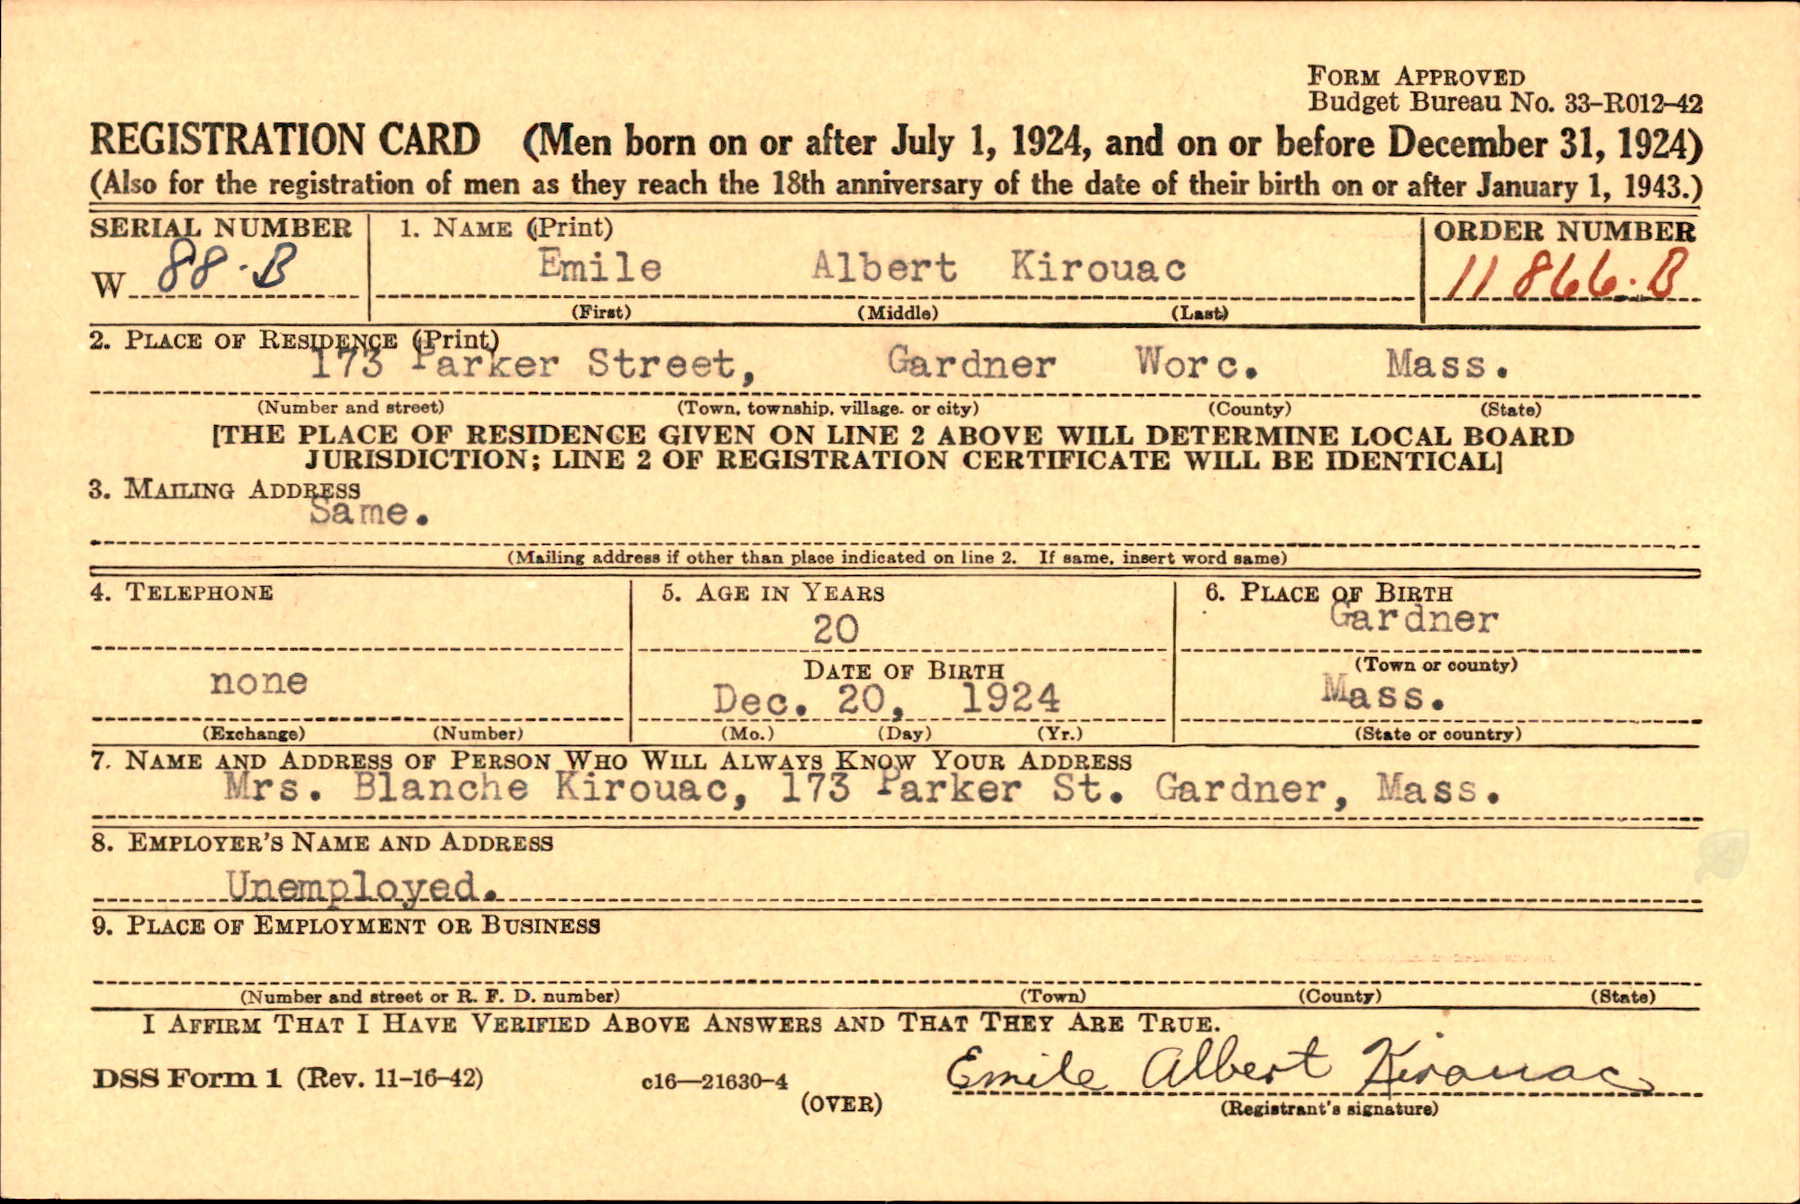 FORM APPROVED
Budget Bureau No. 33-R012-42
REGISTRATION CARD (Men born on or after July 1, 1924, and on or before December 31, 1924)
(Also for the registration of men as they reach the 18th anniversary of the date of their birth on or after January 1, 1943.)
SERIAL NUMBER 1. NAME (Print) ORDER NUMBER
W 88-B Emile Albert Kirouac 11866-B
(First) (Middle) (Last)
2. PLACE OF RESIDENCE (Print)
173 Parker Street, Gardner Worc. Mass.
(Number and street) (Town, township, village, or city) (County) (State)
[THE PLACE OF RESIDENCE GIVEN ON LINE 2 ABOVE WILL DETERMINE LOCAL BOARD
JURISDICTION; LINE 2 OF REGISTRATION CERTIFICATE WILL BE IDENTICAL]
3. MAILING ADDRESS
Same.
(Mailing address if other than place indicated on line 2. If same, insert word same)
4. TELEPHONE 5. AGE IN YEARS 6. PLACE OF BIRTH
20 Gardner
DATE OF BIRTH (Town or county)
none Dec. 20, 1924 Mass.
(Exchange) (Number) (Mo.) (Day) (Yr.) (State or country)
7. NAME AND ADDRESS OF PERSON WHO WILL ALWAYS KNOW YOUR ADDRESS
Mrs. Blanche Kirouac, 173 Parker St. Gardner, Mass.
8. EMPLOYER'S NAME AND ADDRESS
Unemployed.
9. PLACE OF EMPLOYMENT OR BUSINESS
(Number and street or R. F. D. number) (Town) (County) (State)
I AFFIRM THAT I HAVE VERIFIED ABOVE ANSWERS AND THAT THEY ARE TRUE.
DSS Form 1 (Rev. 11-16-42) c16—21630-4 Emile Albert Kirouac
(OVER) (Registrant's signature)